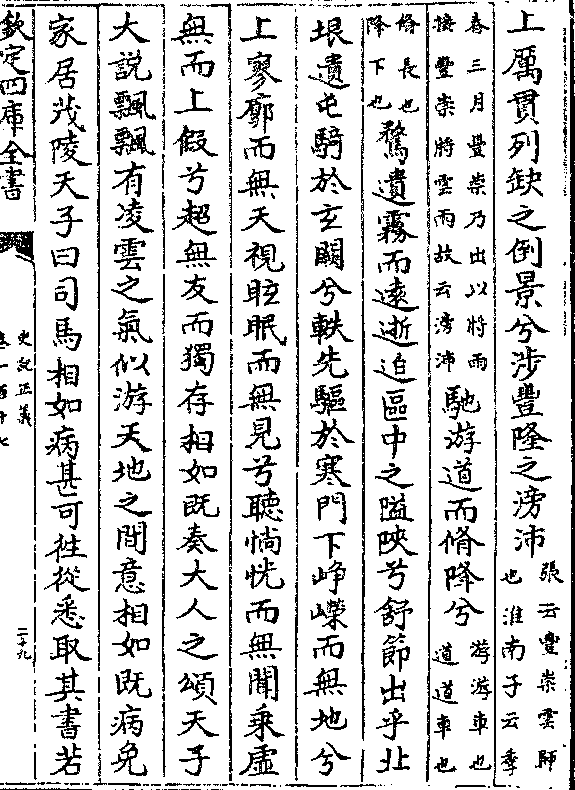 上厲貫列缺之倒景兮涉豐隆之滂沛張云豐崇雲師也淮南子云季
春三月豐崇乃出以將雨接豐崇將雲雨故云滂沛馳游道而脩降兮游游車也道道車也
脩長也降下也騖遺霧而遠逝迫區中之隘陜兮舒節出乎北
垠遺屯騎於玄闕兮軼先驅於寒門下崢嶸而無地兮
上寥廓而無天視眩眠而無見兮聽惝恍而無聞乘虛
無而上假兮超無友而獨存相如既奏大人之頌天子
大説飄飄有凌雲之氣似游天地之間意相如既病免
家居茂陵天子曰司馬相如病甚可往從悉取其書若
欽定四庫全書
史記正義
卷一百十七
二十九